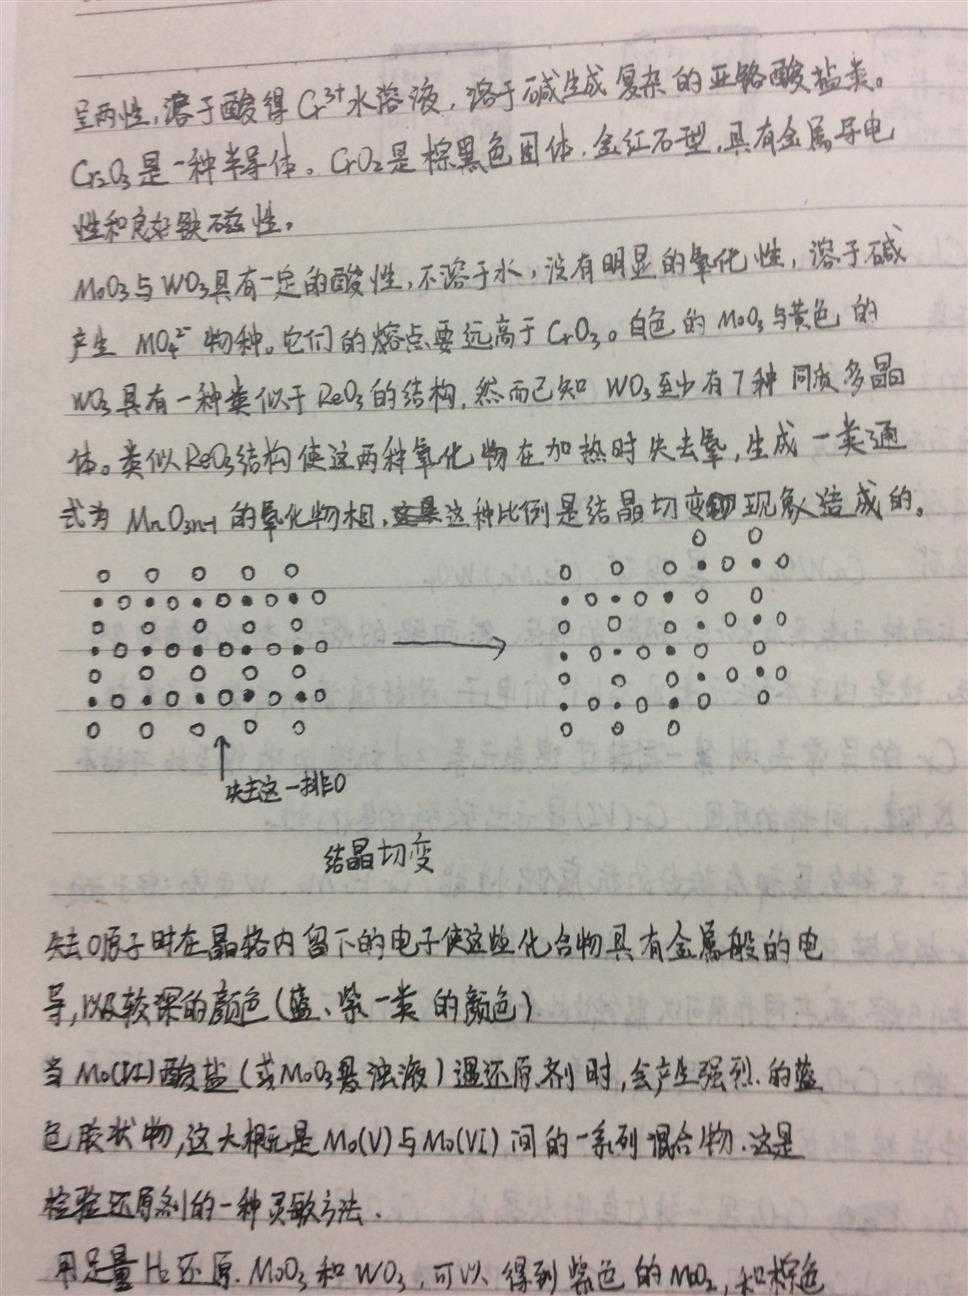 呈两性,溶于酸得Cr³⁺水溶液,溶于碱生成复杂的亚铬酸盐类。
Cr₂O₃是一种半导体。CrO₂是棕黑色固体.金红石型,具有金属导电
性和良好铁磁性。
MoO₃与WO₃具有一定的酸性,不溶于水,没有明显的氧化性,溶于碱
产生 MO₄²⁻ 物种。它们的熔点要远高于CrO₃。白色的MoO₃与黄色的
WO₃具有一种类似于ReO₃的结构,然而已知 WO₃至少有7种同质多晶
体。类似ReO₃结构使这两种氧化物在加热时失去氧,生成一类通
式为 MₙO₃ₙ₋₁ 的氧化物相,这种比例是结晶切变现象造成的。
失去这一排O
结晶切变
失去O原子时在晶格内留下的电子使这些化合物具有金属般的电
导,以及较深的颜色(蓝、紫一类的颜色)
当Mo(VI)酸盐(或MoO₃悬浊液)遇还原剂时,会产生强烈.的蓝
色胶状物,这大概是Mo(V)与Mo(VI)间的一系列混合物.这是
检验还原剂的一种灵敏方法.
用足量H₂还原.MoO₃和WO₃,可以得到紫色的MoO₂,和棕色